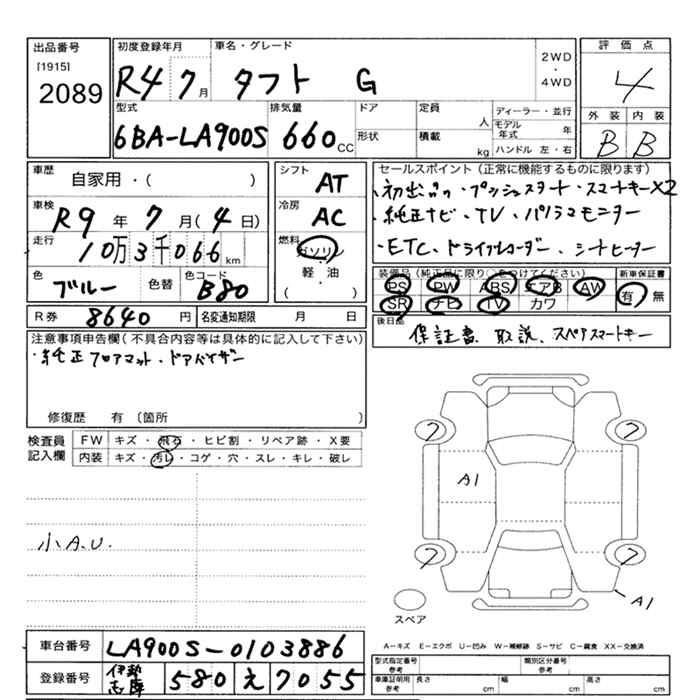 出品番号
[1915]
2089
初度登録年月
R4 7月
車名・グレード
タフト G
2WD
・
4WD
評価点
4
外装 内装
B B
型式
6BA-LA900S
排気量
660 CC
ドア
形状
定員
人
積載
kg
ディーラー・並行
モデル
年式
年
ハンドル 左・右
車歴
自家用・( )
車検
R9年7月(4日)
走行
10万3千066km
色
ブルー
色替
色コード
B80
シフト
AT
冷房
AC
燃料
ガソリン
軽・油
( )
セールスポイント(正常に機能するものに限ります)
・初出品・プッシュスタート・スマートキー×2
・純正ナビ、TV、パノラマモニター
・ETC、ドライブレコーダー、シートヒーター
PS PW ABS エアB AW
SR ナビ TV カワ
新車保証書
有・無
R券 8640円
名変通知期限 月 日
後日品
保証書、取説、スペアスマートキー
注意事項申告欄(不具合内容等は具体的に記入して下さい)
・純正フロアマット・ドアバイザー
修復歴 有〔箇所
検査員
記入欄
FW キズ・飛石・ヒビ割・リペア跡・X要
内装 キズ・汚レ・コゲ・穴・スレ・キレ・破レ
小A.U.
7
7
A1
7
7
A1
スペア
A−キズ E−エクボ U−凹み W−補修跡 S−サビ C−腐食 XX−交換済
車台番号 LA900S-0103886
登録番号 伊勢志摩 580 え 7055
型式指定番号
参考
類別区分番号
参考
車庫証明用
参考
長さ cm
幅 cm
高さ cm